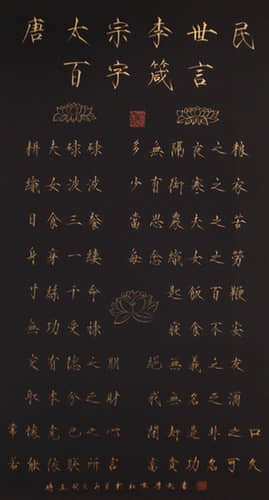 唐太宗李世民
百字箴言
耕夫碌碌 多無隔夜之糧
織女波波 少有御寒之衣
日食三餐 當思農夫之苦
身穿一縷 每念織女之勞
寸絲千命 匙飯百鞭
無功受祿 寢食不安
交有德之朋 絕無義之友
取本分之財 戒無名之酒
常懷克己之心 閉却是非之口
若能依朕所言 富貴功名可久